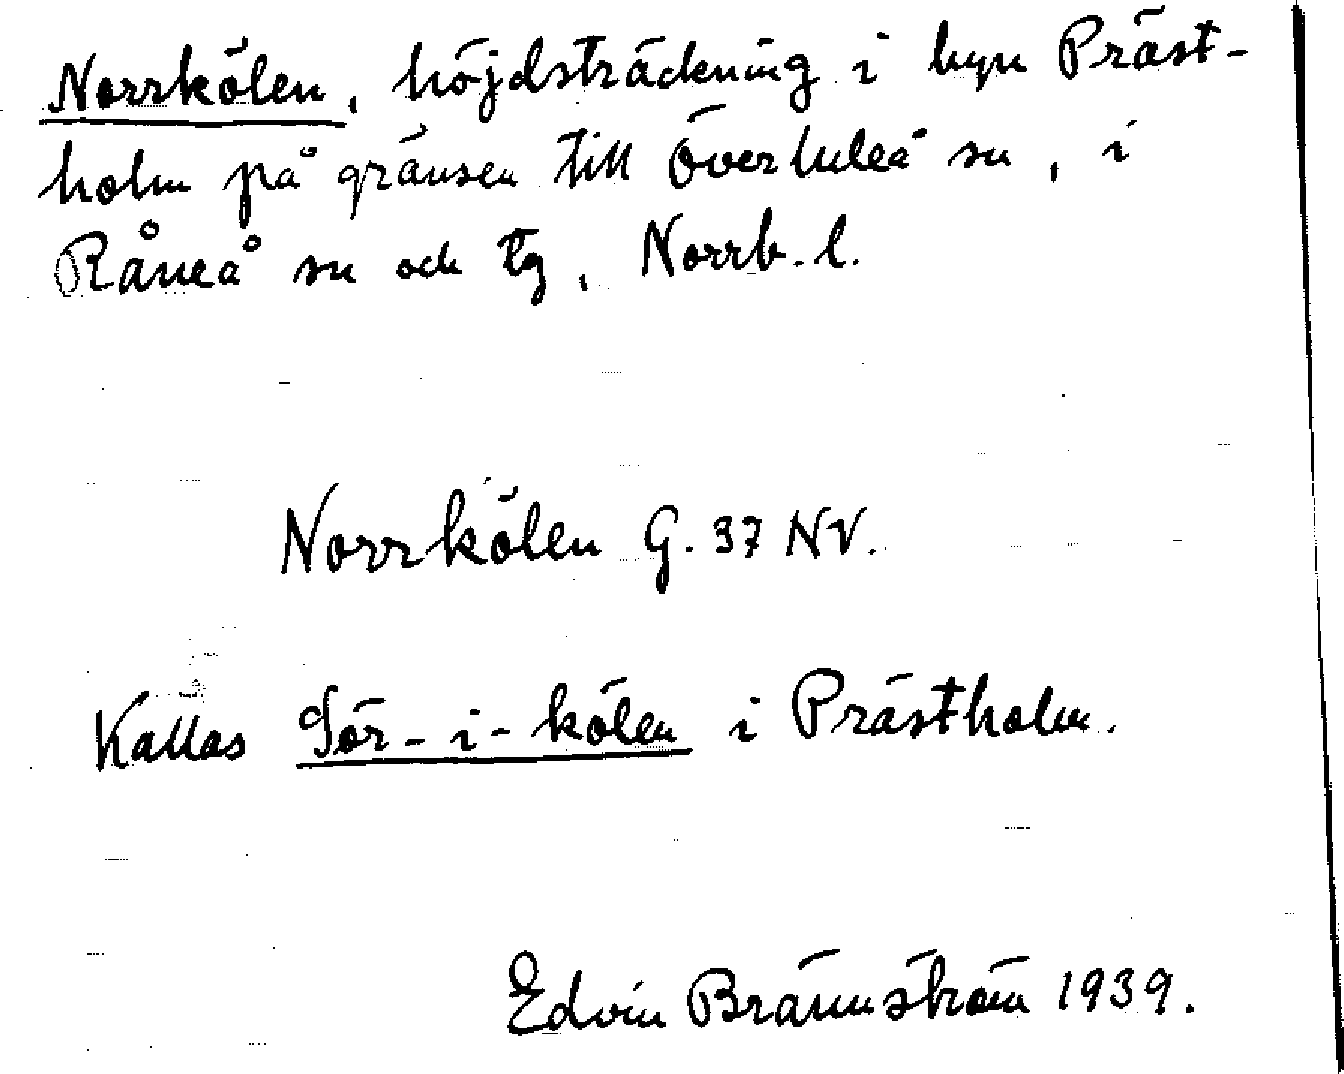 Norrkölen, höjdsträckning i byn Präst-
holm på gränsen till Överluleå sn, i
Råneå sn och tg, Norrb. l.
Norrkölen G. 37 NV.
Kallas Sör-i-kölen i Prästholm.
Edvin Brännström 1939.